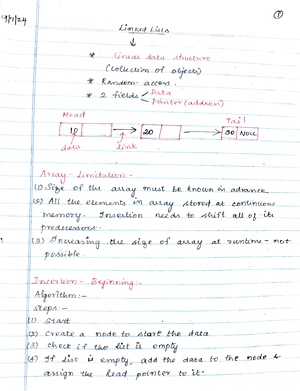 9/7/24
①
Linked Lists
* Linear data structure
(Collection of objects)
* Random-access.
* 2 fields Data
Pointer (address)
Head Tail
10 20 30 NULL
data link
Array - Limitation:-
(1) Size of the array must be known in advance
(2) All the elements in array stored at continuous
memory. Insertion needs to shift all of its
predecessors.
(3) Increasing the size of array at runtime - not
possible.
Insertion - Beginning:-
Algorithm:-
Steps:-
(1) Start
(2) Create a node to start the data
(3) check if the list is empty
(4) If list is empty, add the data to the node &
assign the head pointer to it.